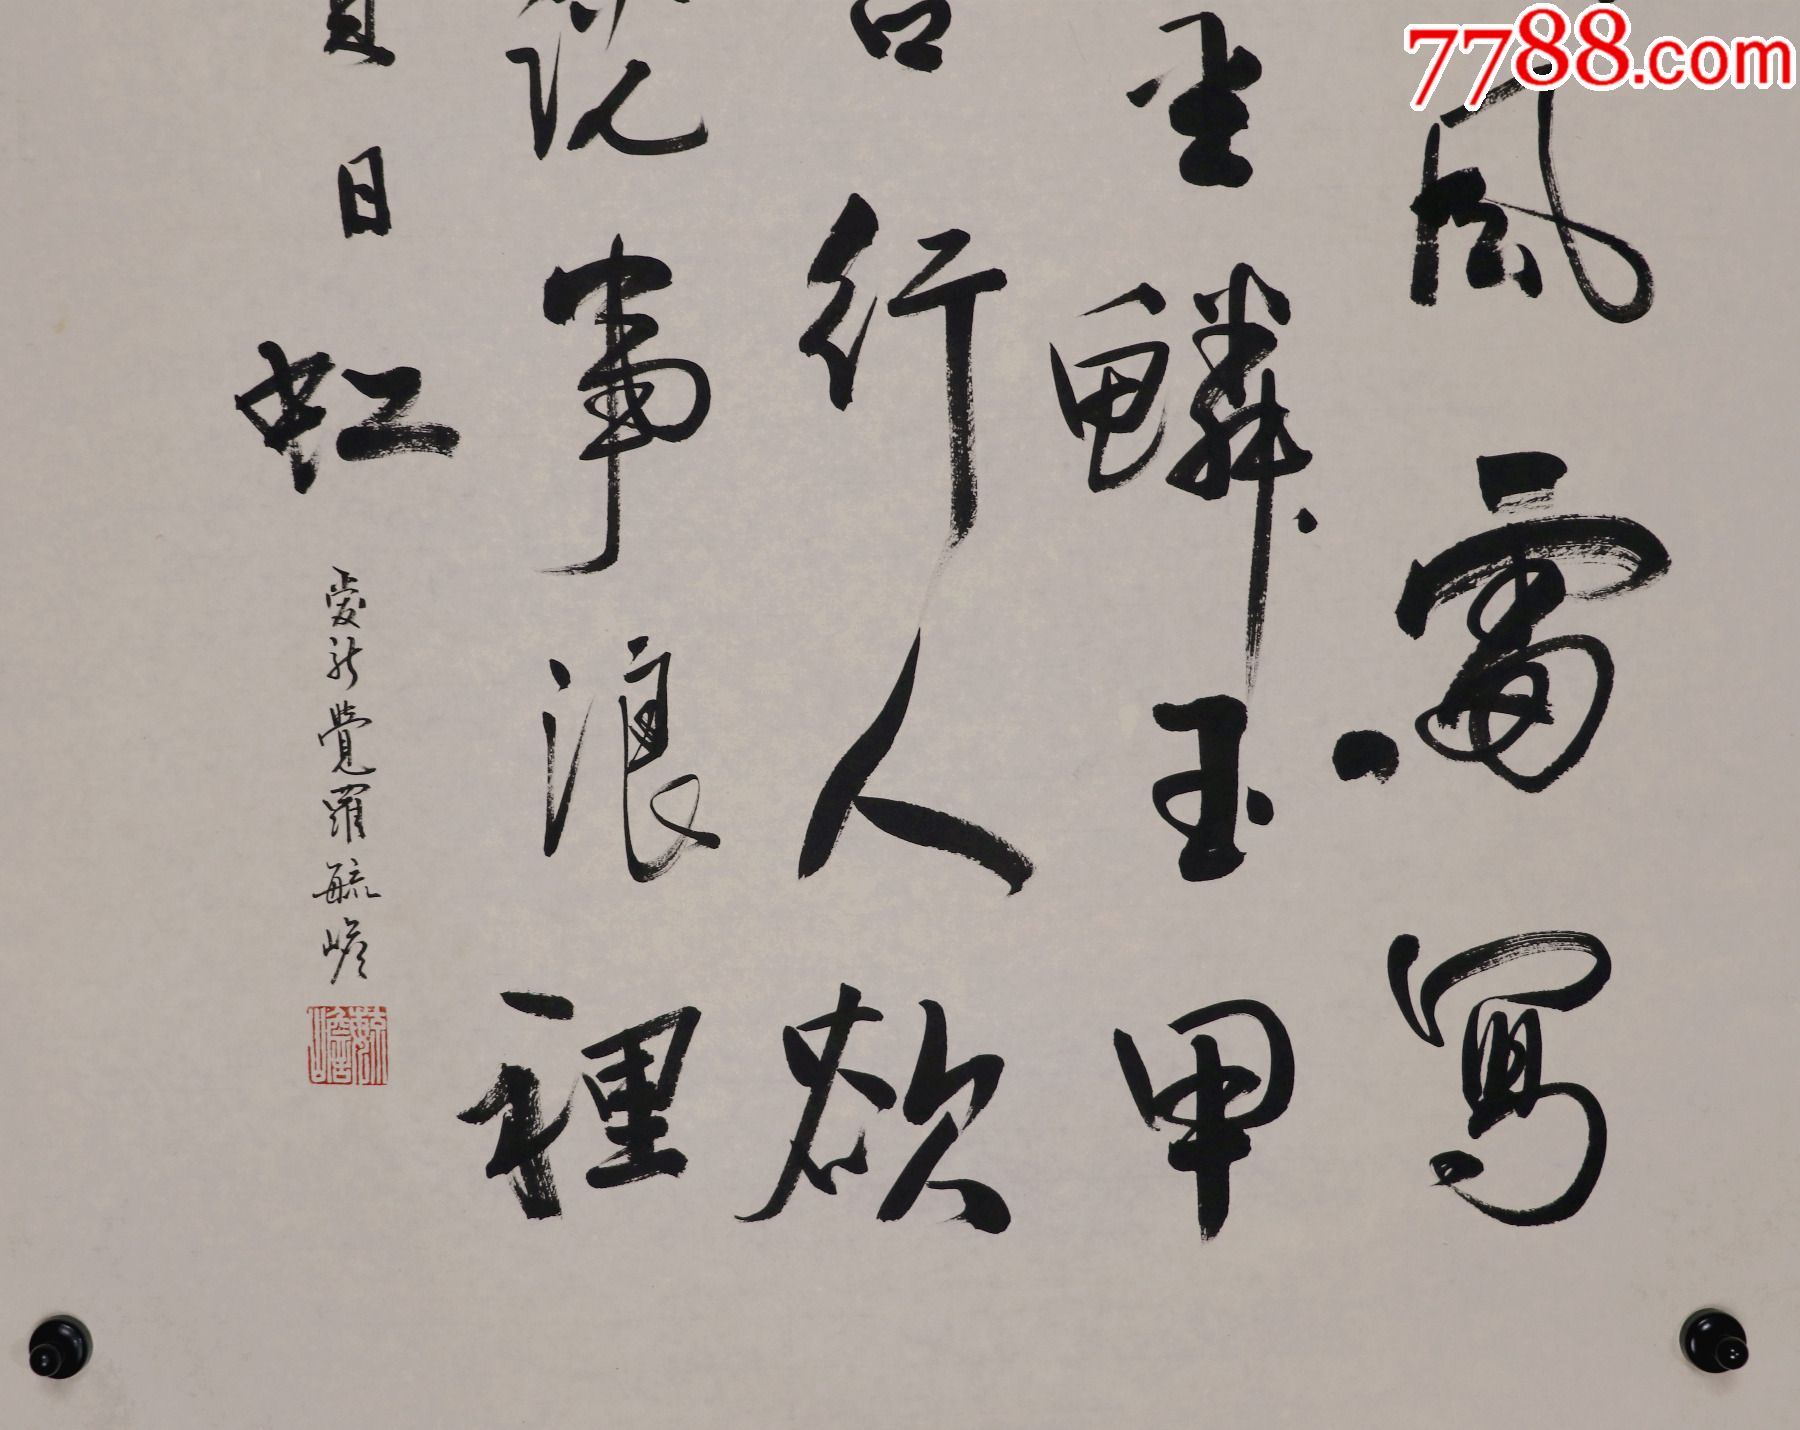 7788.com
風雷寫
坐鱗玉甲
行人欲
說事浪裡
日虹
愛新覺羅毓嶦
毓嶦